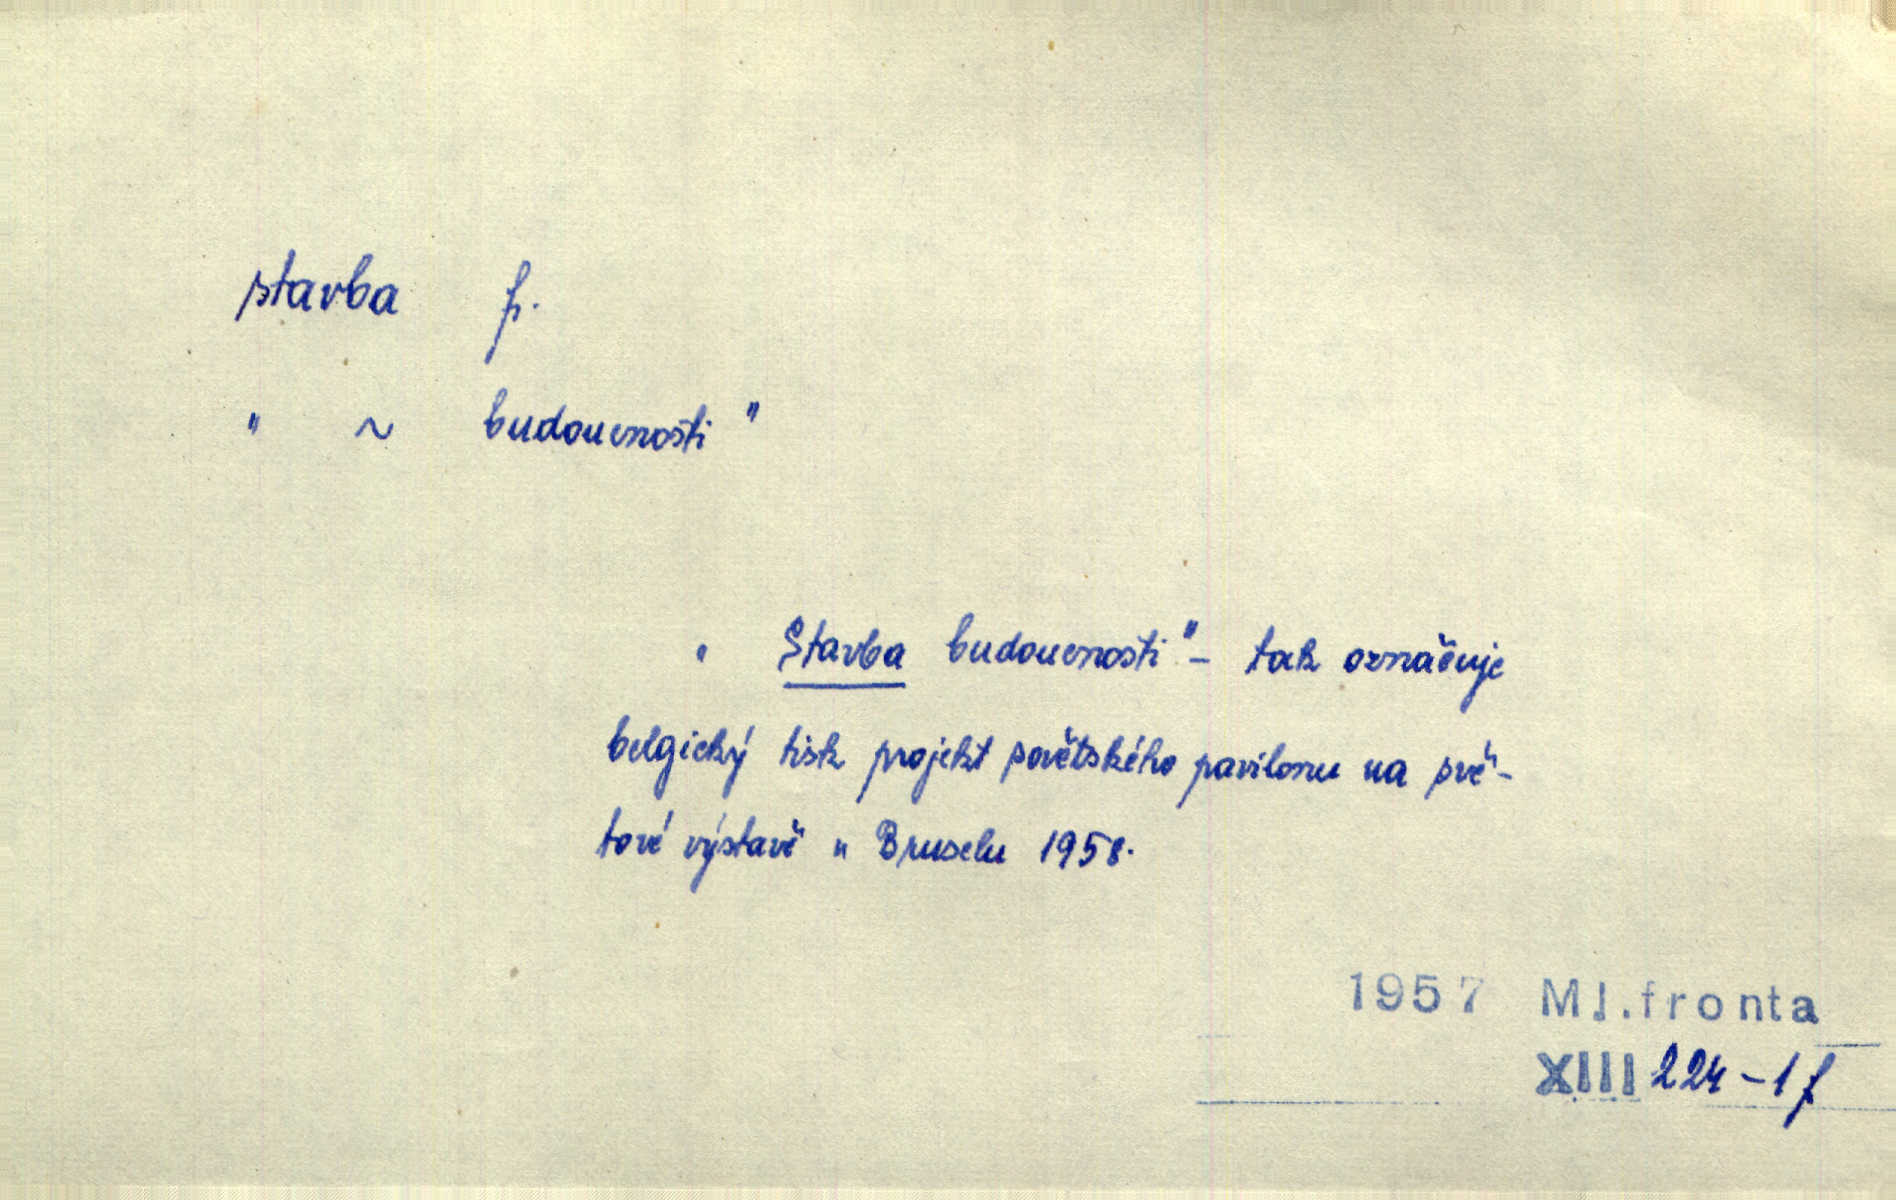 stavba f.
" ~ budoucnosti "
" Stavba budoucnosti" - tak označuje
belgický tisk projekt sovětského pavilonu na svě-
tové výstavě v Bruselu 1958.
1957 Ml.fronta
XIII 224-1f